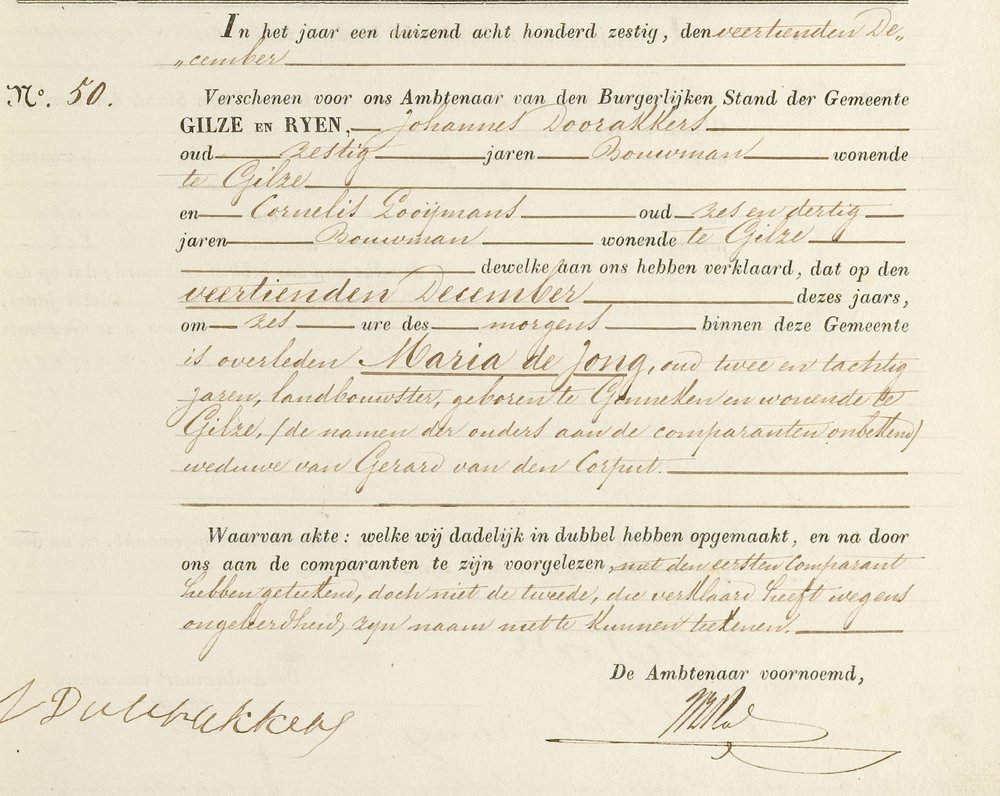 In het jaar een duizend acht honderd zestig, den veertienden De„
„cember
No. 50.
Verschenen voor ons Ambtenaar van den Burgerlijken Stand der Gemeente
GILZE EN RYEN, Johannes Doorakkers
oud zestig jaren Bouwman wonende
te Gilze
en Cornelis Gooijmans oud zes en dertig
jaren Bouwman wonende te Gilze
dewelke aan ons hebben verklaard, dat op den
veertienden December dezes jaars,
om zes ure des morgens binnen deze Gemeente
is overleden Maria de Jong, oud twee en tachtig
jaren, landbouwster, geboren te Ginneken en wonende te
Gilze, (de namen der ouders aan de comparanten onbekend)
weduwe van Gerard van den Corput.
Waarvan akte: welke wij dadelijk in dubbel hebben opgemaakt, en na door
ons aan de comparanten te zijn voorgelezen, met den eersten Comparant
hebben geteekend, doch niet de tweede, die verklaard heeft wegens
ongeleerdheid zijn naam niet te kunnen teekenen.
De Ambtenaar voornoemd,